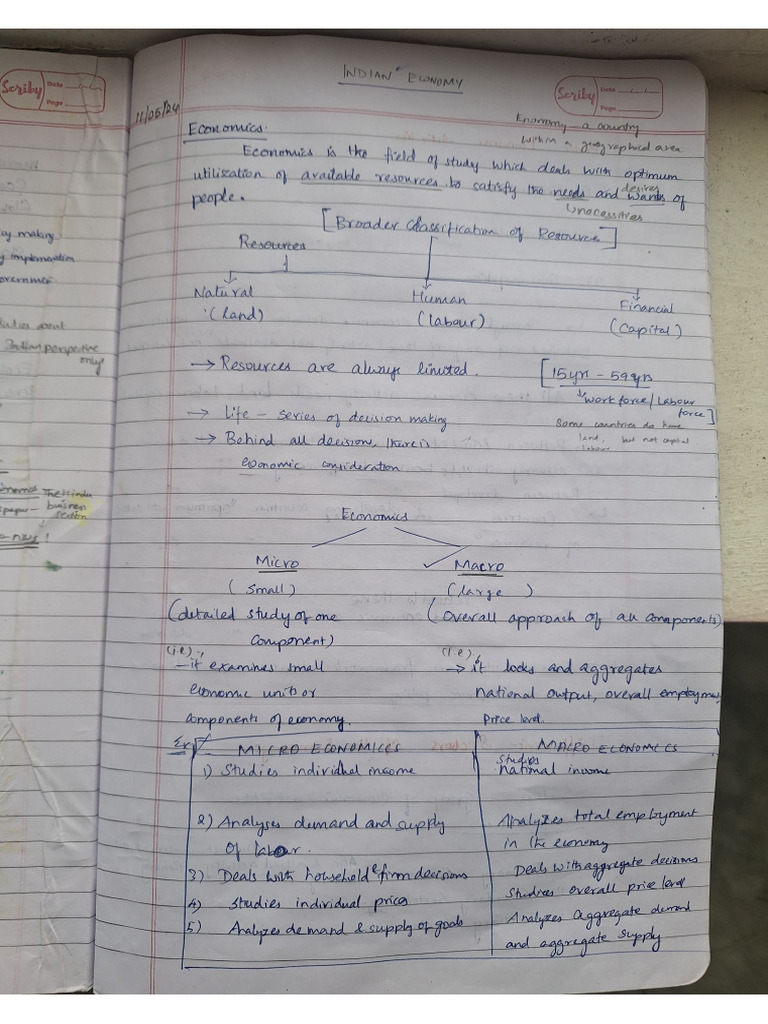 Scriby Date
Page
INDIAN ECONOMY
Scriby Date
Page
11/05/24
Economics:
Economy - a country
within a geographical area
Economics is the field of study which deals with optimum
utilization of available resources to satisfy the needs and wants of
desires
people.
Unnecessities
[Broader Classification of Resources]
Resources
Natural Human Financial
(land) (labour) (Capital)
→ Resources are always limited. [15yrs - 59yrs
workforce/Labour
force]
→ Life - series of decision making
Some countries do have
land, but not capital
labour
→ Behind all decisions, there is
economic consideration
Economics
Micro ✓ Macro
(small) (large)
(detailed study of one (overall approach of all components)
component)
(i.e), (i.e),
- it examines small → it looks and aggregates
economic units or national output, overall employment,
components of economy. Price level.
Ex: MICRO ECONOMICS MACRO ECONOMICS
1) Studies individual income Studies
national income
2) Analyses demand and supply Analyzes total employment
of labour. in the economy
3) Deals with household & firm decisions Deals with aggregate decisions
4) Studies individual prices Studies overall price level
5) Analyzes demand & supply of goods Analyzes aggregate demand
and aggregate supply
making
implementation
Indian perspective
only
The Hindu
business
section
!